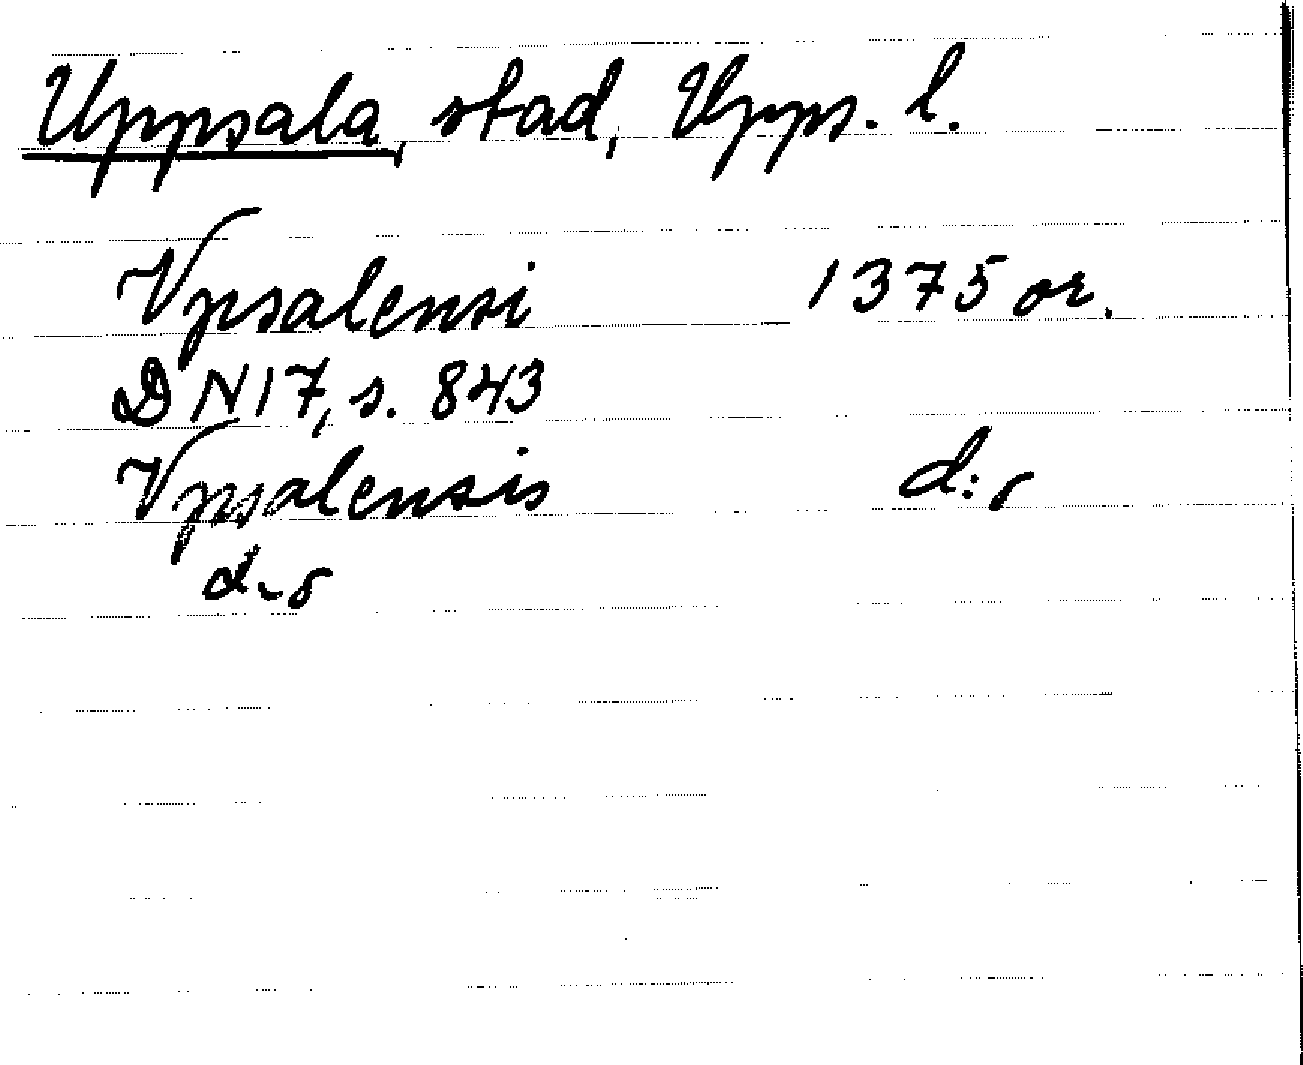 Uppsala, stad, Upps. l.
Vpsalensi 1375 or.
DN 17, s. 843
Vpsalensis d:o
d:o